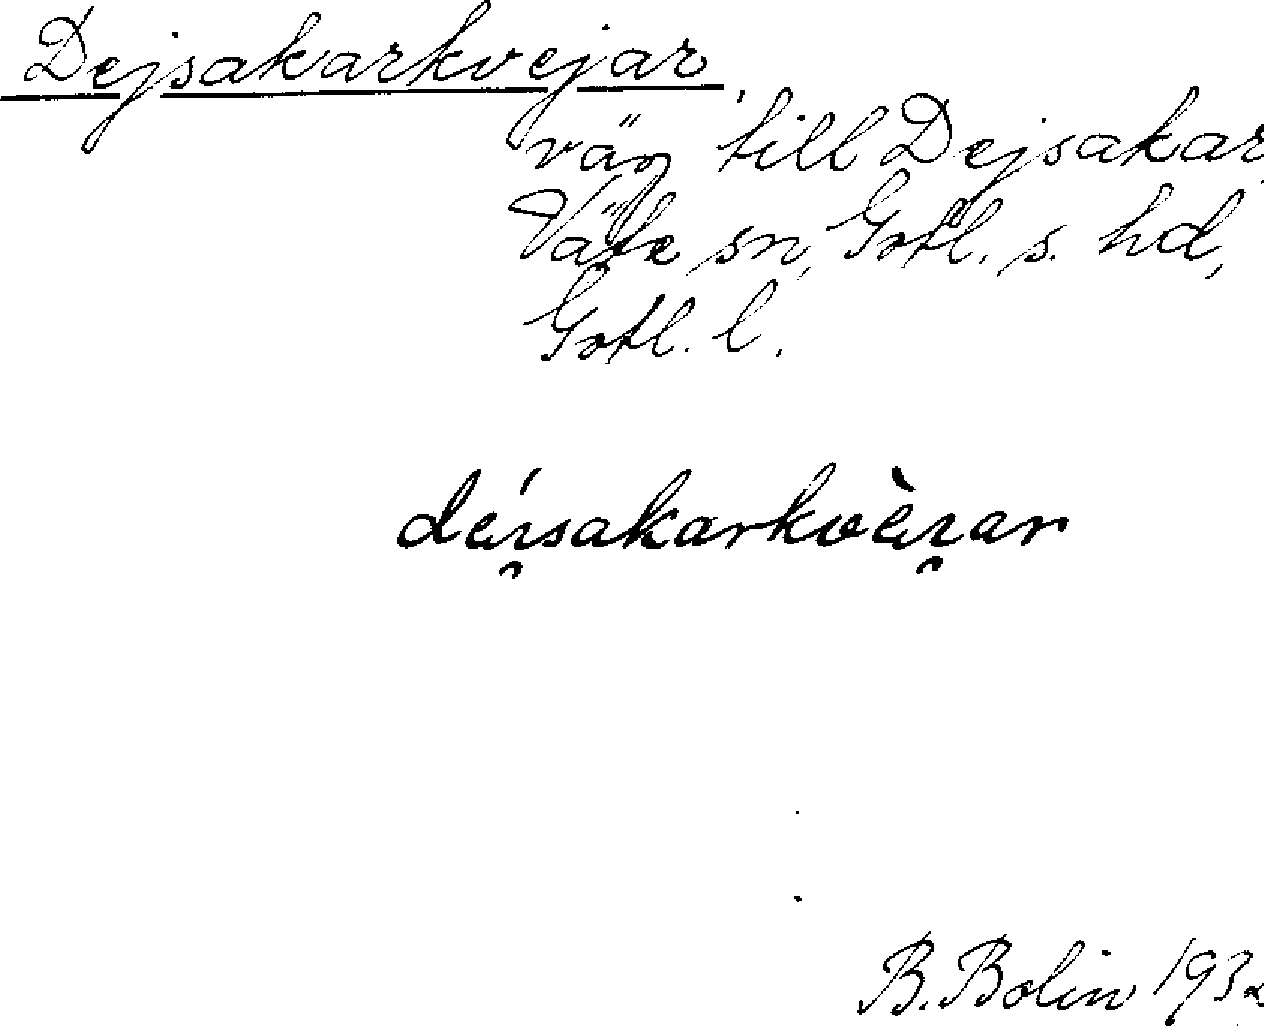 Dejsakarkvejar,
väg till Dejsakar,
Väte sn, Gotl. s. hd,
Gotl. l.
déi̯sakarkvèi̯ar
B. Bolin 1932